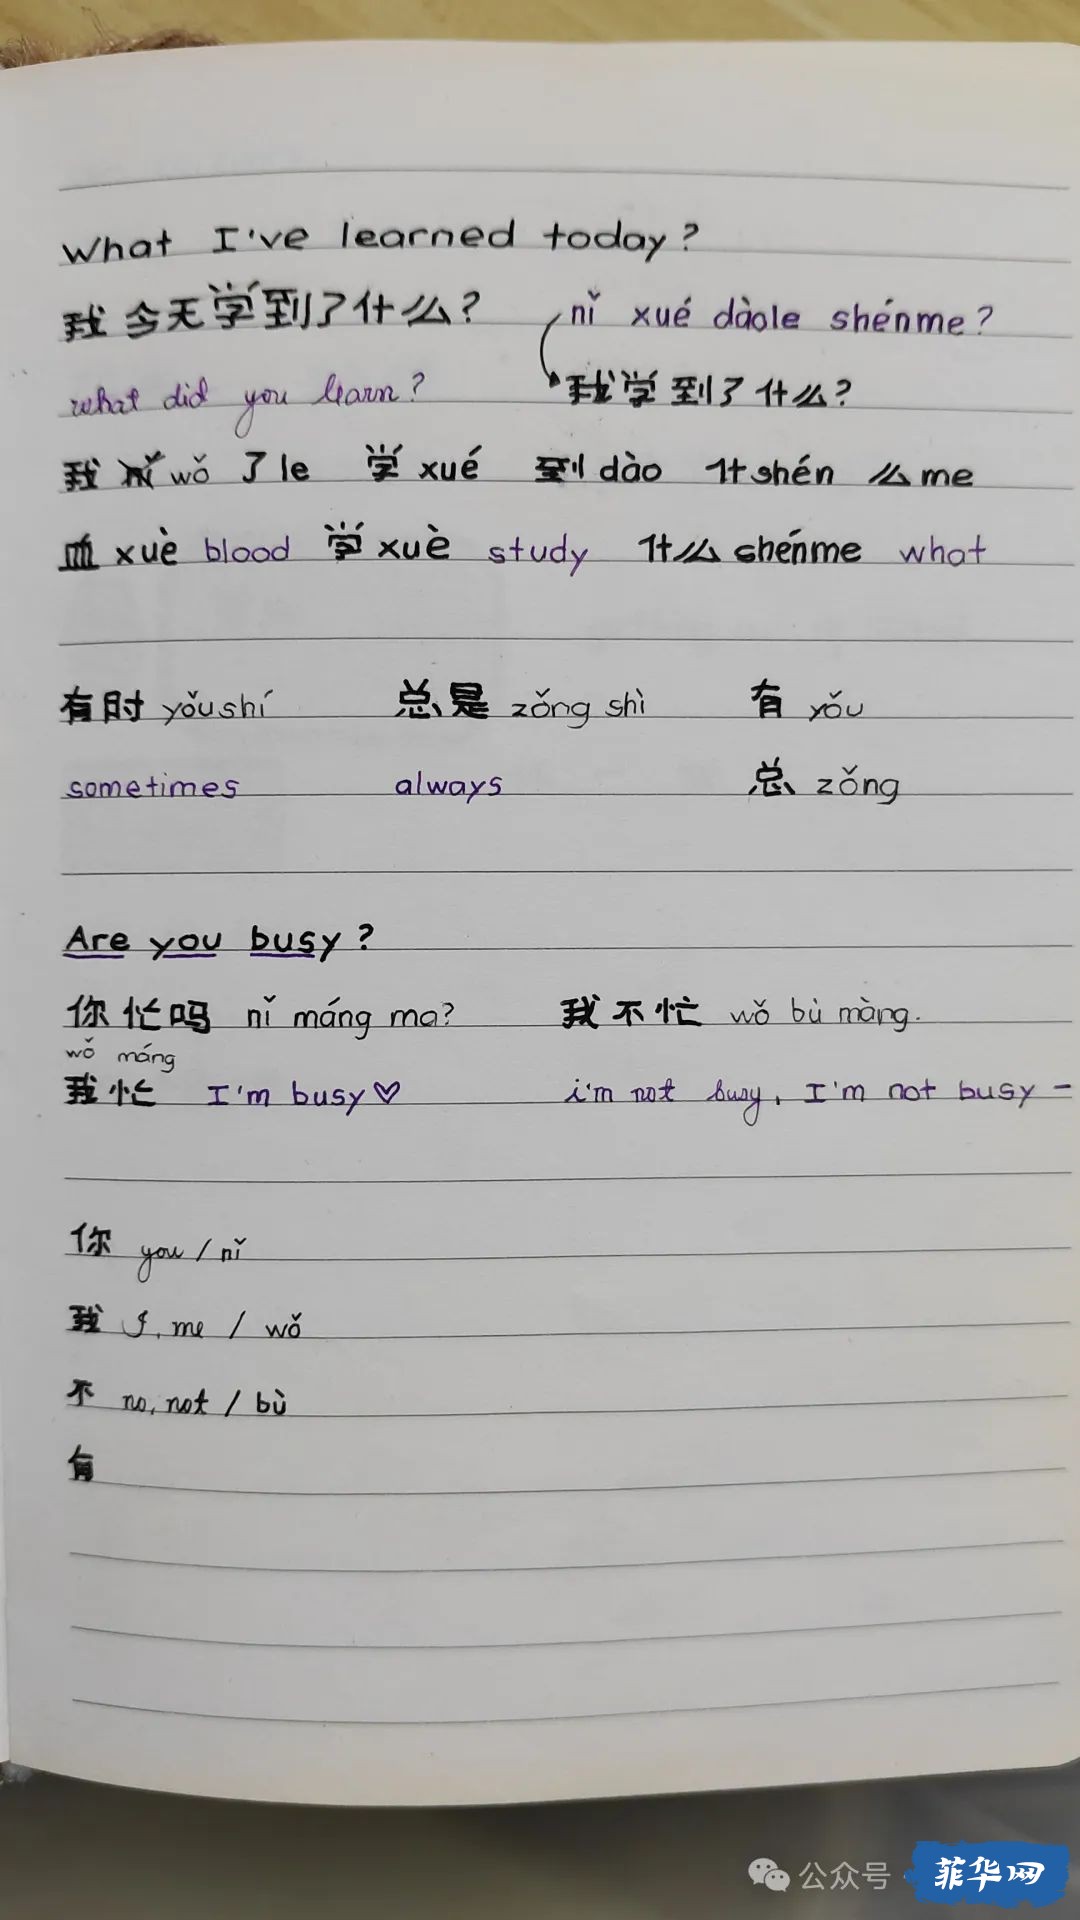 What I've learned today?
我今天学到了什么? nǐ xué dàole shénme?
what did you learn? 我学到了什么?
我 nǐ wǒ 了le 学xué 到dào 什shén 么me
血xuè blood 学xuè study 什么shénme what
有时 yǒushí 总是 zǒng shì 有 yǒu
sometimes always 总 zǒng
Are you busy?
你忙吗 nǐ máng ma? 我不忙 wǒ bù màng.
wǒ máng
我忙 I'm busy♡ i'm not busy, I'm not busy -
你 you / nǐ
我 I, me / wǒ
不 no, not / bù
有
公众号 · 菲华网